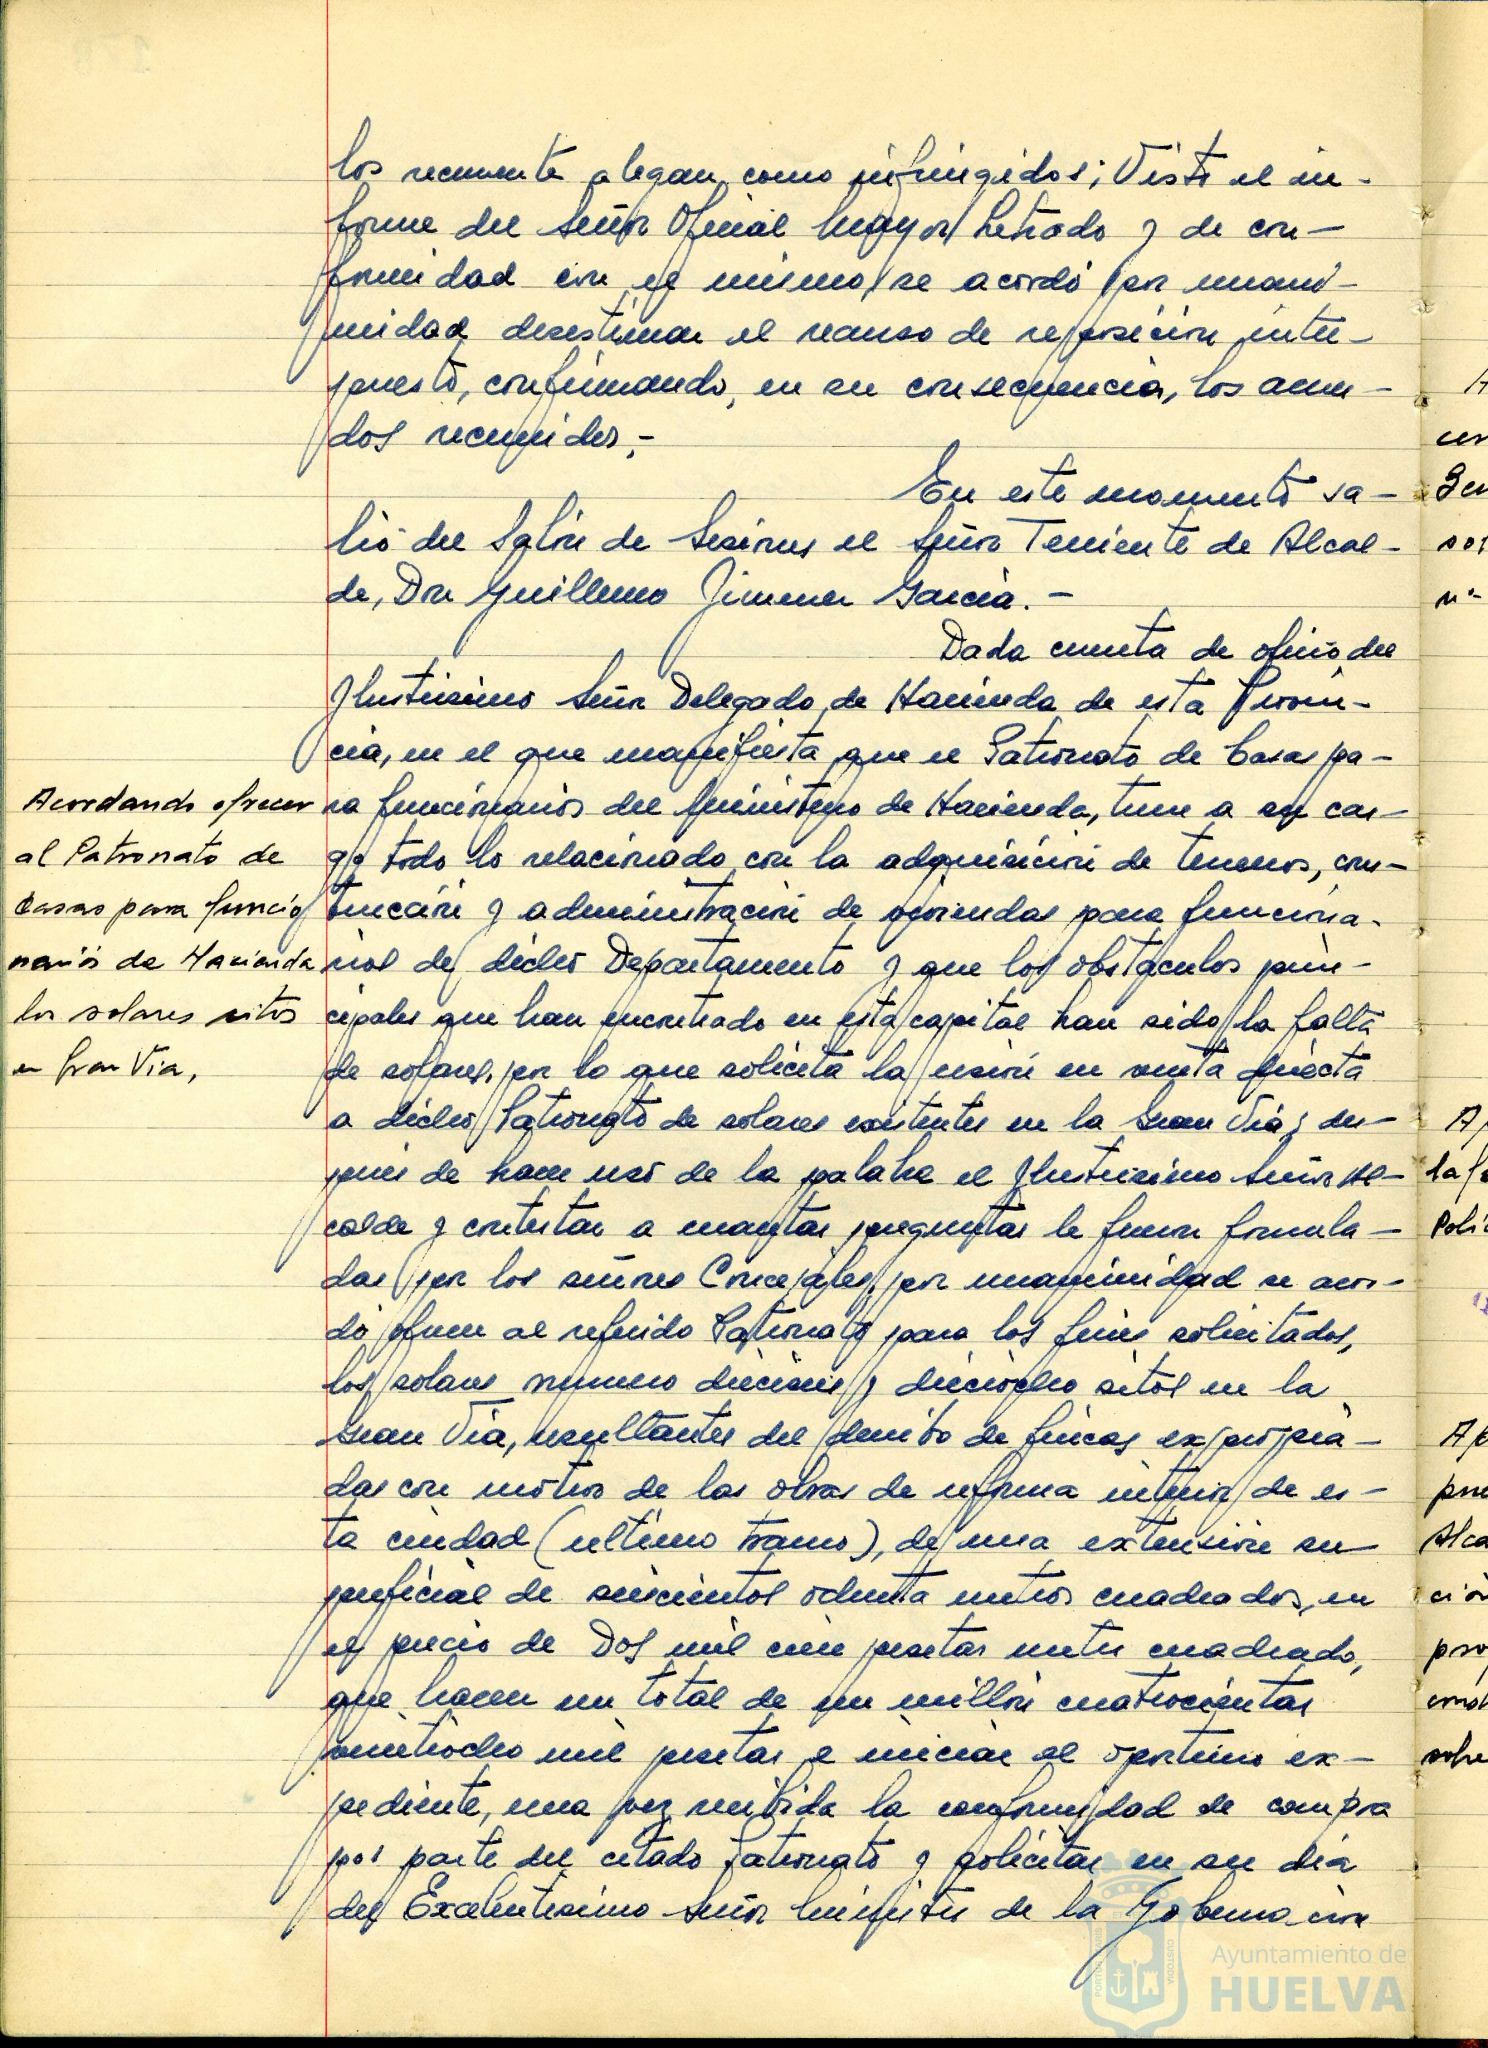 los recurrente alegan como infringidos; Visto el in-
forme del Señor Oficial Mayor Letrado y de con-
formidad con el mismo, se acordó por unani-
midad desestimar el recurso de reposición inter-
puesto, confirmando, en su consecuencia, los acuer-
dos recurridos.-
En este momento sa-
lió del Salón de Sesiones el Señor Teniente de Alcal-
de, Don Guillermo Jimenez García.-
Dada cuenta de oficio del
Ilustrisimo Señor Delegado de Hacienda de esta Provin-
cia, en el que manifiesta que el Patronato de Casas pa-
ra funcionarios del Ministerio de Hacienda, tiene a su car-
go todo lo relacionado con la adquisición de terrenos, cons-
trucción y administración de viviendas para funciona-
rios de dicho Departamento y que los obstaculos prin-
cipales que han encontrado en esta capital han sido la falta
de solares, por lo que solicita la cesión en venta directa
a dicho Patronato de solares existentes en la Gran Via; des-
pués de hacer uso de la palabra el Ilustrisimo Señor Al-
calde y contestar a cuantas preguntas le fueron formula-
das por los señores Concejales, por unanimidad se acor-
dó ofrecer al referido Patronato para los fines solicitados,
los solares numero dieciseis y dieciocho sitos en la
Gran Via, resultantes del derribo de fincas expropia-
das con motivo de las obras de reforma interior de es-
ta ciudad (ultimo tramo), de una extensión su-
perficial de seiscientos ochenta metros cuadrados, en
el precio de Dos mil cien pesetas metro cuadrado,
que hacen un total de un millón cuatrocientas
veintiocho mil pesetas e iniciar el oportuno ex-
pediente, una vez recibida la conformidad de compra
por parte del citado Patronato y solicitar en su día
del Excelentisimo Señor Ministro de la Gobernación
Acordando ofrecer
al Patronato de
Casas para funcio
narios de Hacienda
los solares sitos
en Gran Via,
Ayuntamiento de
HUELVA